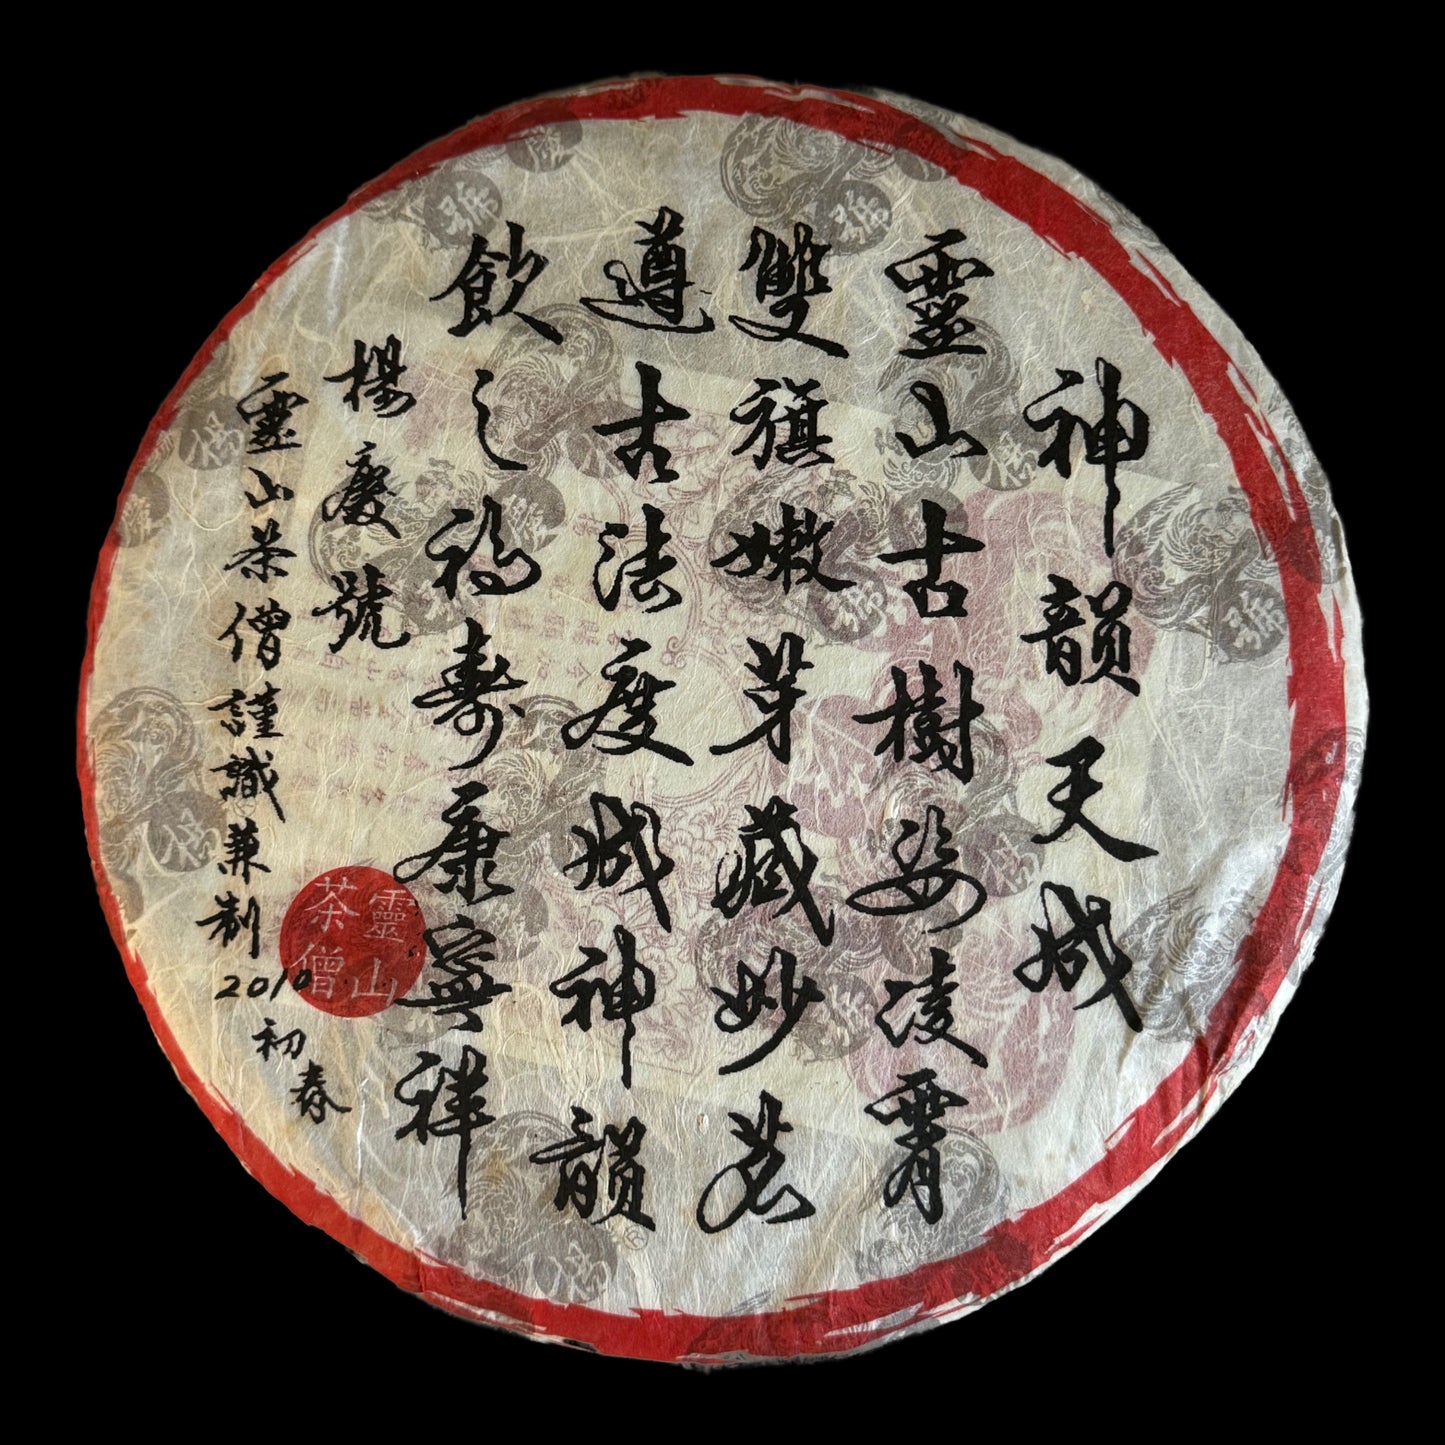 神韻天成
靈山古樹姿凌霄
雙旗嫩芽藏妙茗
遵古法度成神韻
飲之福壽康寧祥
楊慶號
靈山茶僧謹識兼制2010初春
靈山
茶僧